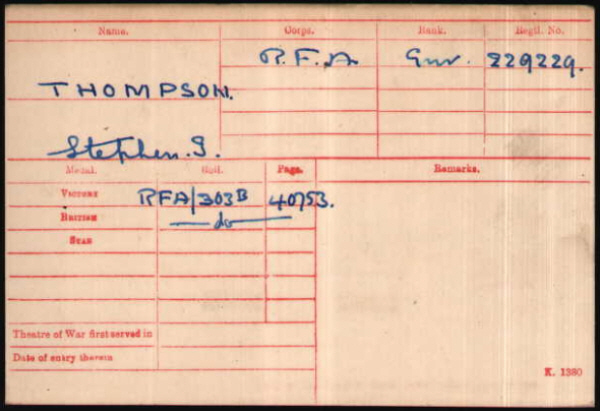 Name. Corps. Rank. Regtl. No.
R.F.A Gnr. 229229.
THOMPSON.
Stephen. S.
Medal. Roll. Page. Remarks.
VICTORY RFA/303B 40753.
BRITISH —do—
STAR
Theatre of War first served in
Date of entry therein
K. 1380